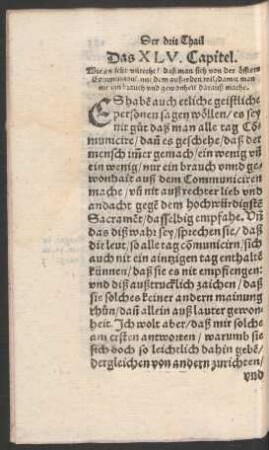 Der drit Thail
Das XLV. Capitel.
daß man sich von der öfftern
Communion
brauch vnd gewonheit darauß mache.
ES habē auch etliche geistliche
personen sagen wöllen / es sey
nit gůt daß man alle tag Cō-
municire / dañ es geschehe / daß der
mensch im̃er gemach / ein wenig vñ
ein wenig / nur ein brauch vnnd ge-
wonhait auß dem Communiciren
mache / vñ nit auß rechter lieb vnd
andacht gegē dem hochwürdigstē
Sacramēt / dasselbig empfahe. Vñ
das diß wahr sey / sprechen sie / daß
die leut / so alle tag cōmunicirn / sich
auch nit ein ainzigen tag enthaltē
künnen / daß sie es nit empfiengen:
vnd diß außtrucklich zaichen / daß
sie solches keiner andern mainung
thůn / dañ allein auß lauter gewon-
heit. Ich wolt aber / daß mir solche
am ersten antworten / warumb sie
sich doch so leichtlich dahin gebē /
dergleichen von andern zurichten /
vnd